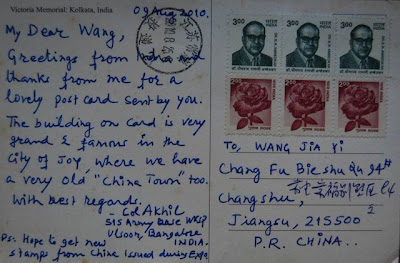 Victoria Memorial: Kolkata, India
09 Aug 2010.
My Dear Wang,
Greetings from India and
thanks from me for a
lovely post card sent by you.
The building on Card is very
grand & famous in the
City of Joy, where we have
a very old "China Town" too.
With best regards.
- Col Akhil
515 Army Base WKSP
Ulsoor, Bangalore
INDIA.
Ps: Hope to get new
stamps from China issued during Expo.
3.00 3.00 3.00
To, WANG Jia Yi
Chang Fu Bie shu Qu 94#
Changshu,
Jiangsu, 215500
P.R. CHINA..